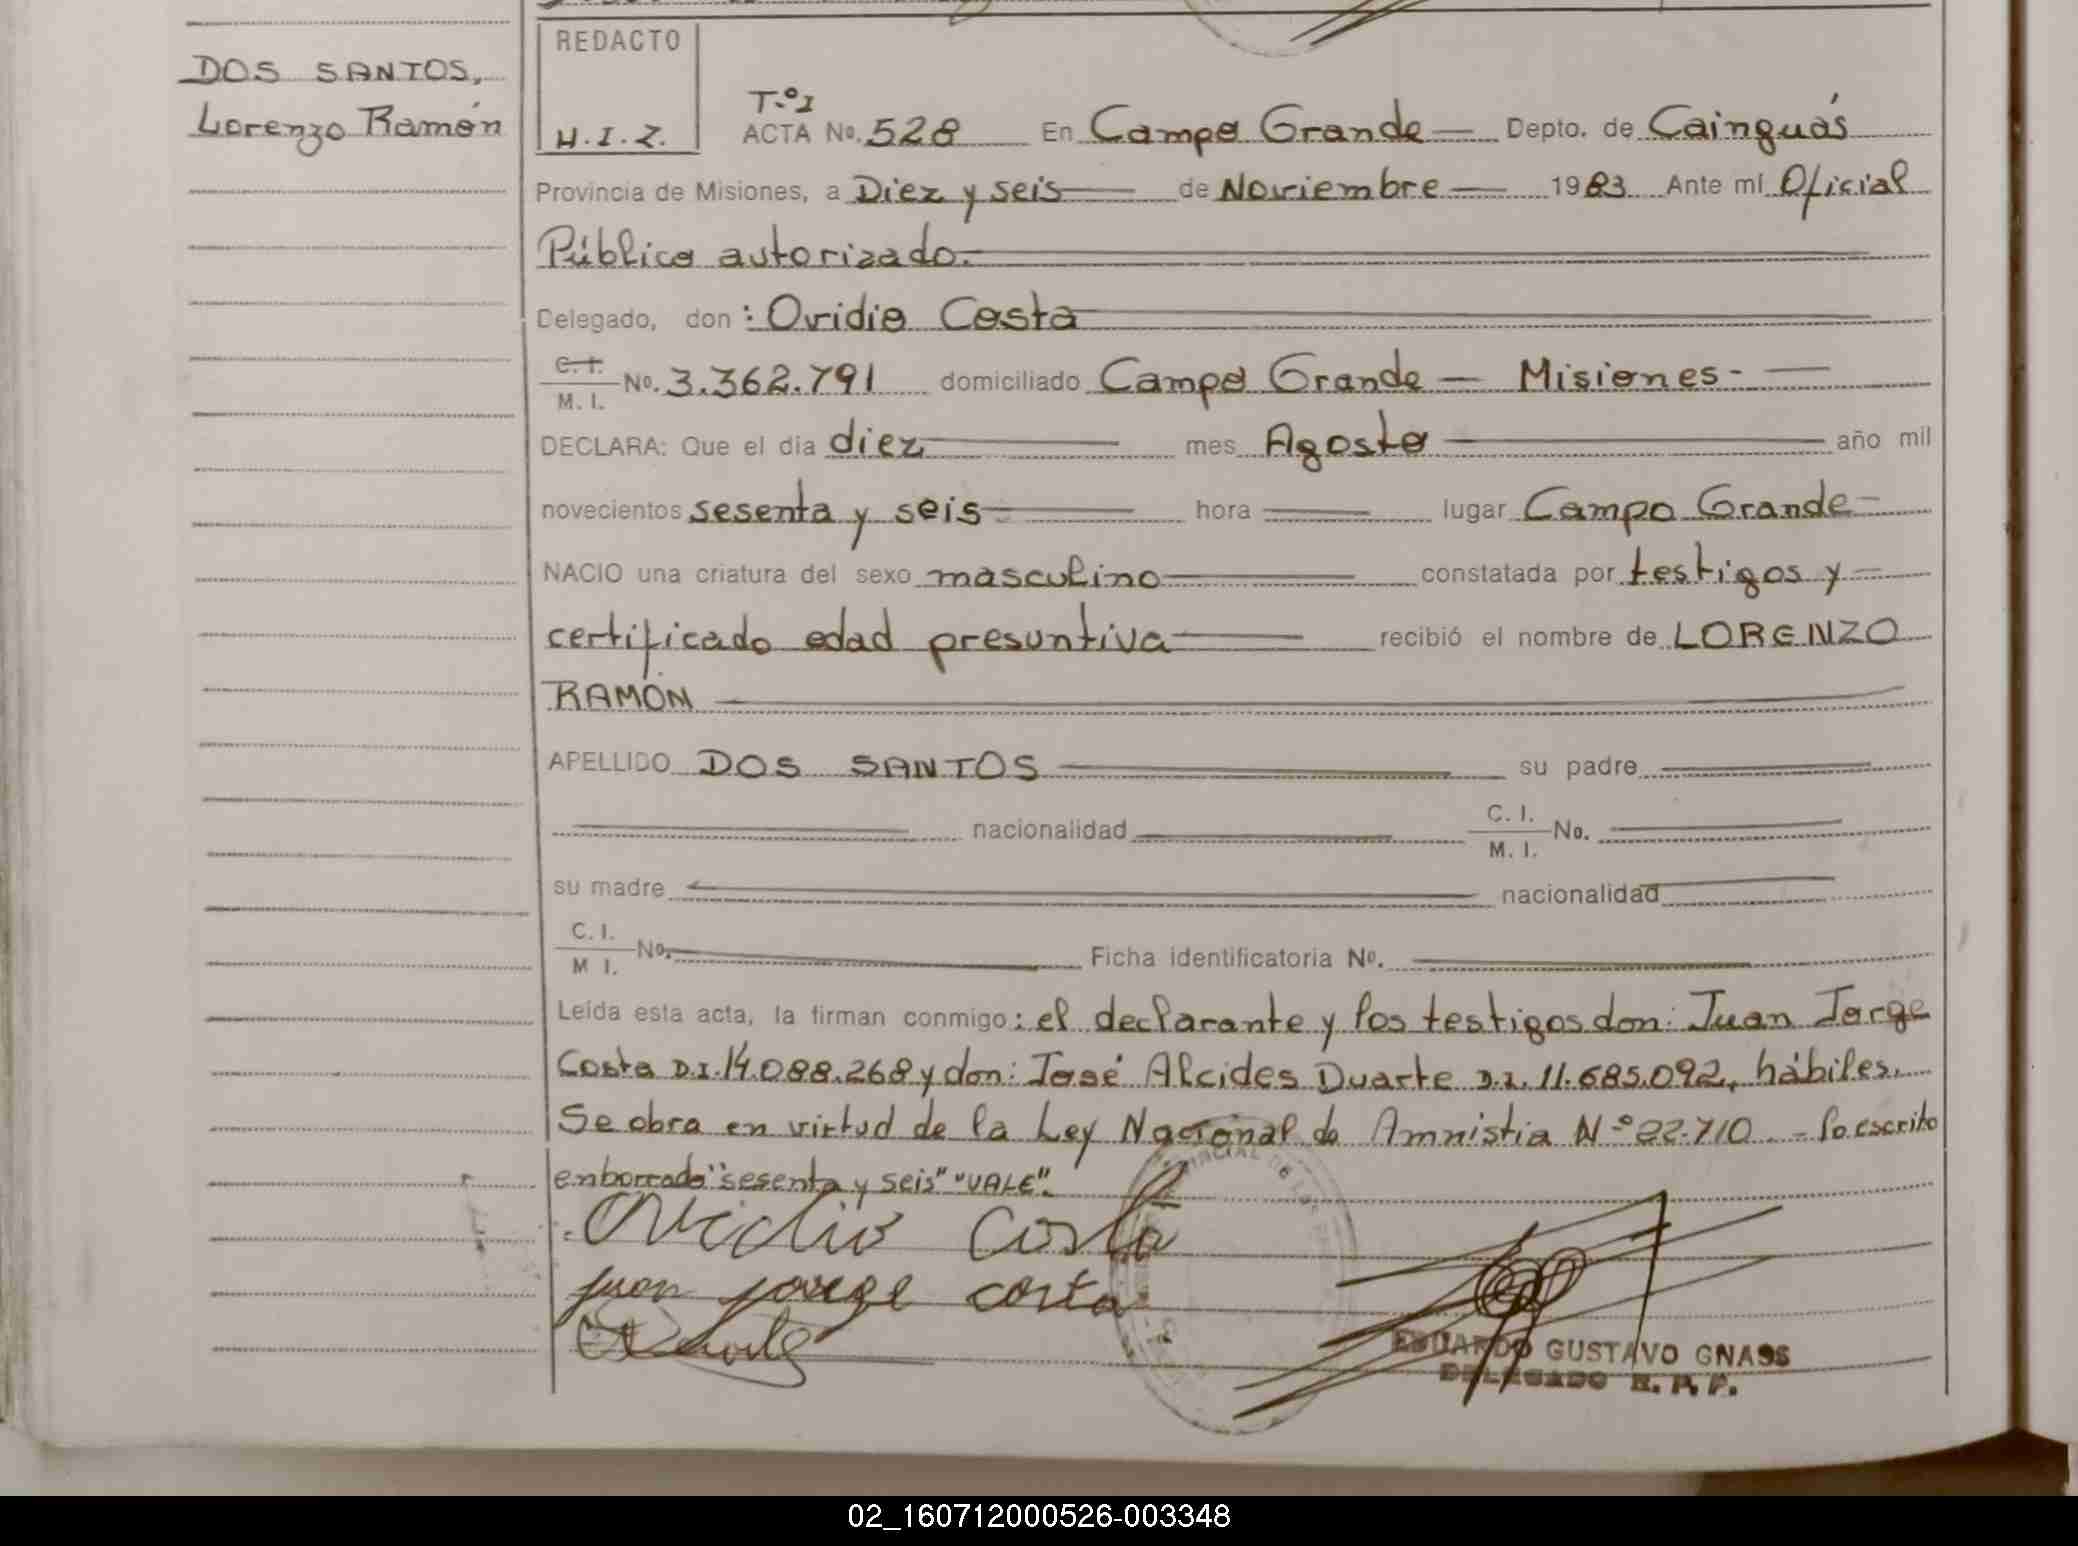 DOS SANTOS,
Lorenzo Ramón
REDACTO
H.I.Z.
T.º I
ACTA No. 528 En Campo Grande — Depto. de Cainguás
Provincia de Misiones, a Diez y seis — de Noviembre — 1983 Ante mi Oficial
Público autorizado.
Delegado, don: Ovidio Costa
C.I. M.I. No. 3.362.791 domiciliado Campo Grande — Misiones-
DECLARA: Que el dia diez mes Agosto año mil
novecientos sesenta y seis hora lugar Campo Grande
NACIO una criatura del sexo masculino constatada por testigos y
certificado edad presuntiva recibió el nombre de LORENZO
RAMÓN
APELLIDO DOS SANTOS su padre
nacionalidad C. I. M. I. No.
su madre nacionalidad
C. I. M I. No. Ficha identificatoria No.
Leída esta acta, la firman conmigo: el declarante y los testigos don: Juan Jorge
Costa D.I. 14.088.268 y don: José Alcides Duarte D.I. 11.685.092, hábiles.
Se obra en virtud de la Ley Nacional de Amnistia Nº 22.710.- lo escrito
enborrado "sesenta y seis" "VALE".
Ovidio Costa
juan jorge costa
EDUARDO GUSTAVO GNASS
DELEGADO R. P. P.
02_160712000526-003348